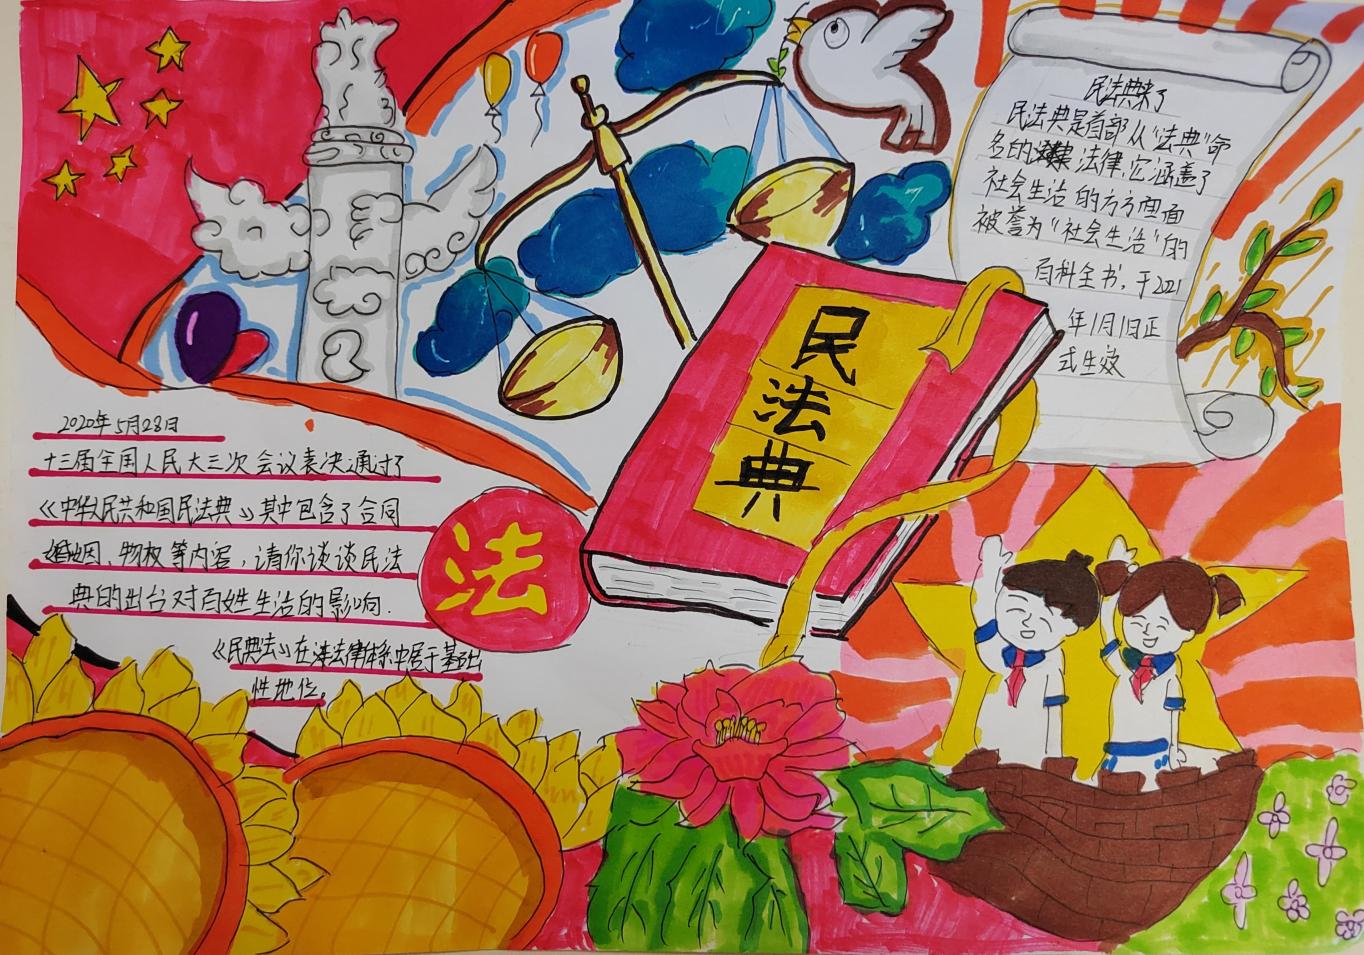 2020年5月28日
十三届全国人民大三次会议表决通过了
《中华人民共和国民法典》其中包含了合同
婚姻、物权等内容，请你谈谈民法
典的出台对百姓生活的影响.
《民典法》在法律体系中居于基础
性地位。
法
民
法
典
民法典来了
民法典是首部从“法典”命
名的法律,它涵盖了
社会生活的方方面面
被誉为“社会生活”的
百科全书,于2021
年1月1日正
式生效